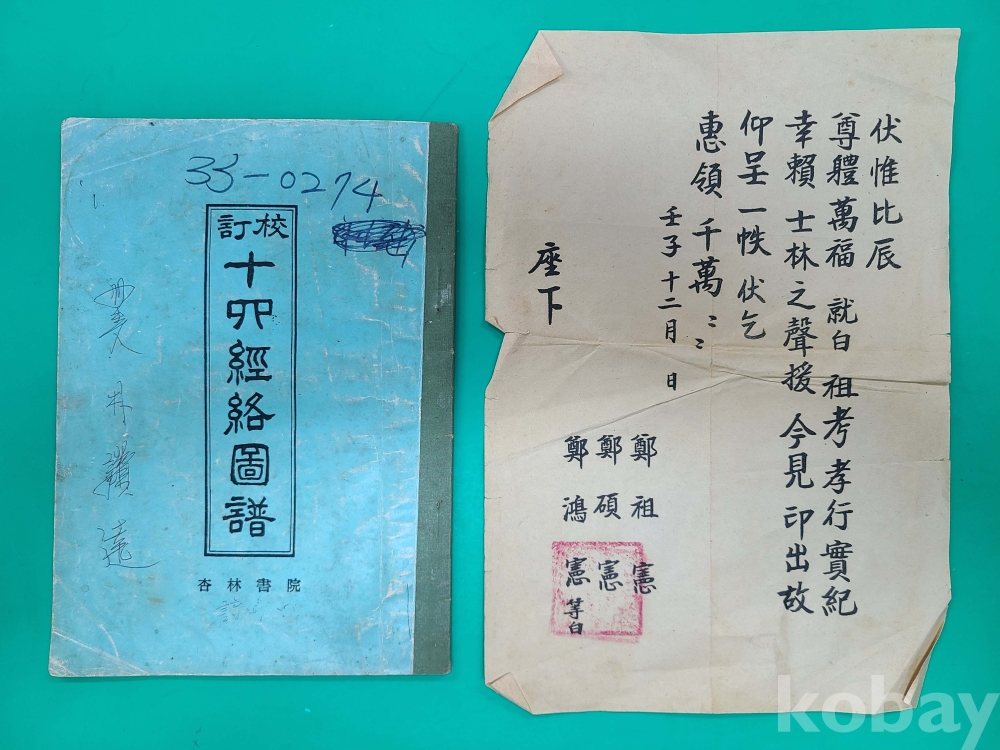 33-0274
校訂
十四經絡圖譜
杏林書院
伏惟比辰
尊軆萬福 就白 祖考孝行實紀
幸賴 士林之聲援 今見 印出故
仰呈一帙 伏乞
惠領 千萬〻〻
壬子 十二月 日
鄭祖憲
鄭碩憲
鄭鴻憲 等白
座下
kobay